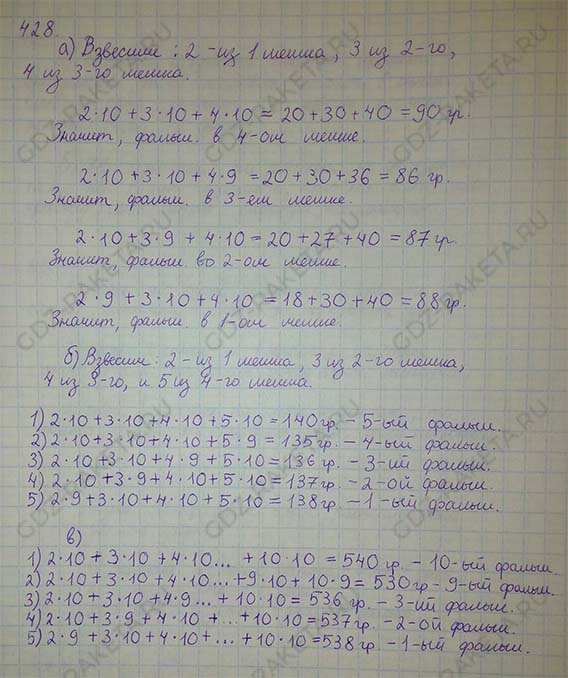 428.
а) Взвесим: 2 -из 1 мешка, 3 из 2-го,
4 из 3-го мешка.
2·10 + 3·10 + 4·10 = 20 + 30 + 40 = 90 гр.
Значит, фальш. в 4-ом мешке.
2·10 + 3·10 + 4·9 = 20 + 30 + 36 = 86 гр.
Значит, фальш. в 3-ем мешке.
2·10 + 3·9 + 4·10 = 20 + 27 + 40 = 87 гр.
Значит, фальш. во 2-ом мешке.
2·9 + 3·10 + 4·10 = 18 + 30 + 40 = 88 гр.
Значит, фальш. в 1-ом мешке.
б) Взвесим: 2 - из 1 мешка, 3 из 2-го мешка,
4 из 3-го, и 5 из 4-го мешка.
1) 2·10 + 3·10 + 4·10 + 5·10 = 140 гр. - 5-ый фальш.
2) 2·10 + 3·10 + 4·10 + 5·9 = 135 гр. - 4-ый фальш.
3) 2·10 + 3·10 + 4·9 + 5·10 = 136 гр. - 3-ий фальш.
4) 2·10 + 3·9 + 4·10 + 5·10 = 137 гр. - 2-ой фальш.
5) 2·9 + 3·10 + 4·10 + 5·10 = 138 гр. - 1-ый фальш.
в)
1) 2·10 + 3·10 + 4·10... + 10·10 = 540 гр. - 10-ый фальш.
2) 2·10 + 3·10 + 4·10... + 9·10 + 10·9 = 530 гр - 9-ый фальш.
3) 2·10 + 3·10 + 4·9... + 10·10 = 536 гр. - 3-ий фальш.
4) 2·10 + 3·9 + 4·10 + ... + 10·10 = 537 гр. - 2-ой фальш.
5) 2·9 + 3·10 + 4·10 + ... + 10·10 = 538 гр. - 1-ый фальш.
GDZ-RAKETA.RU